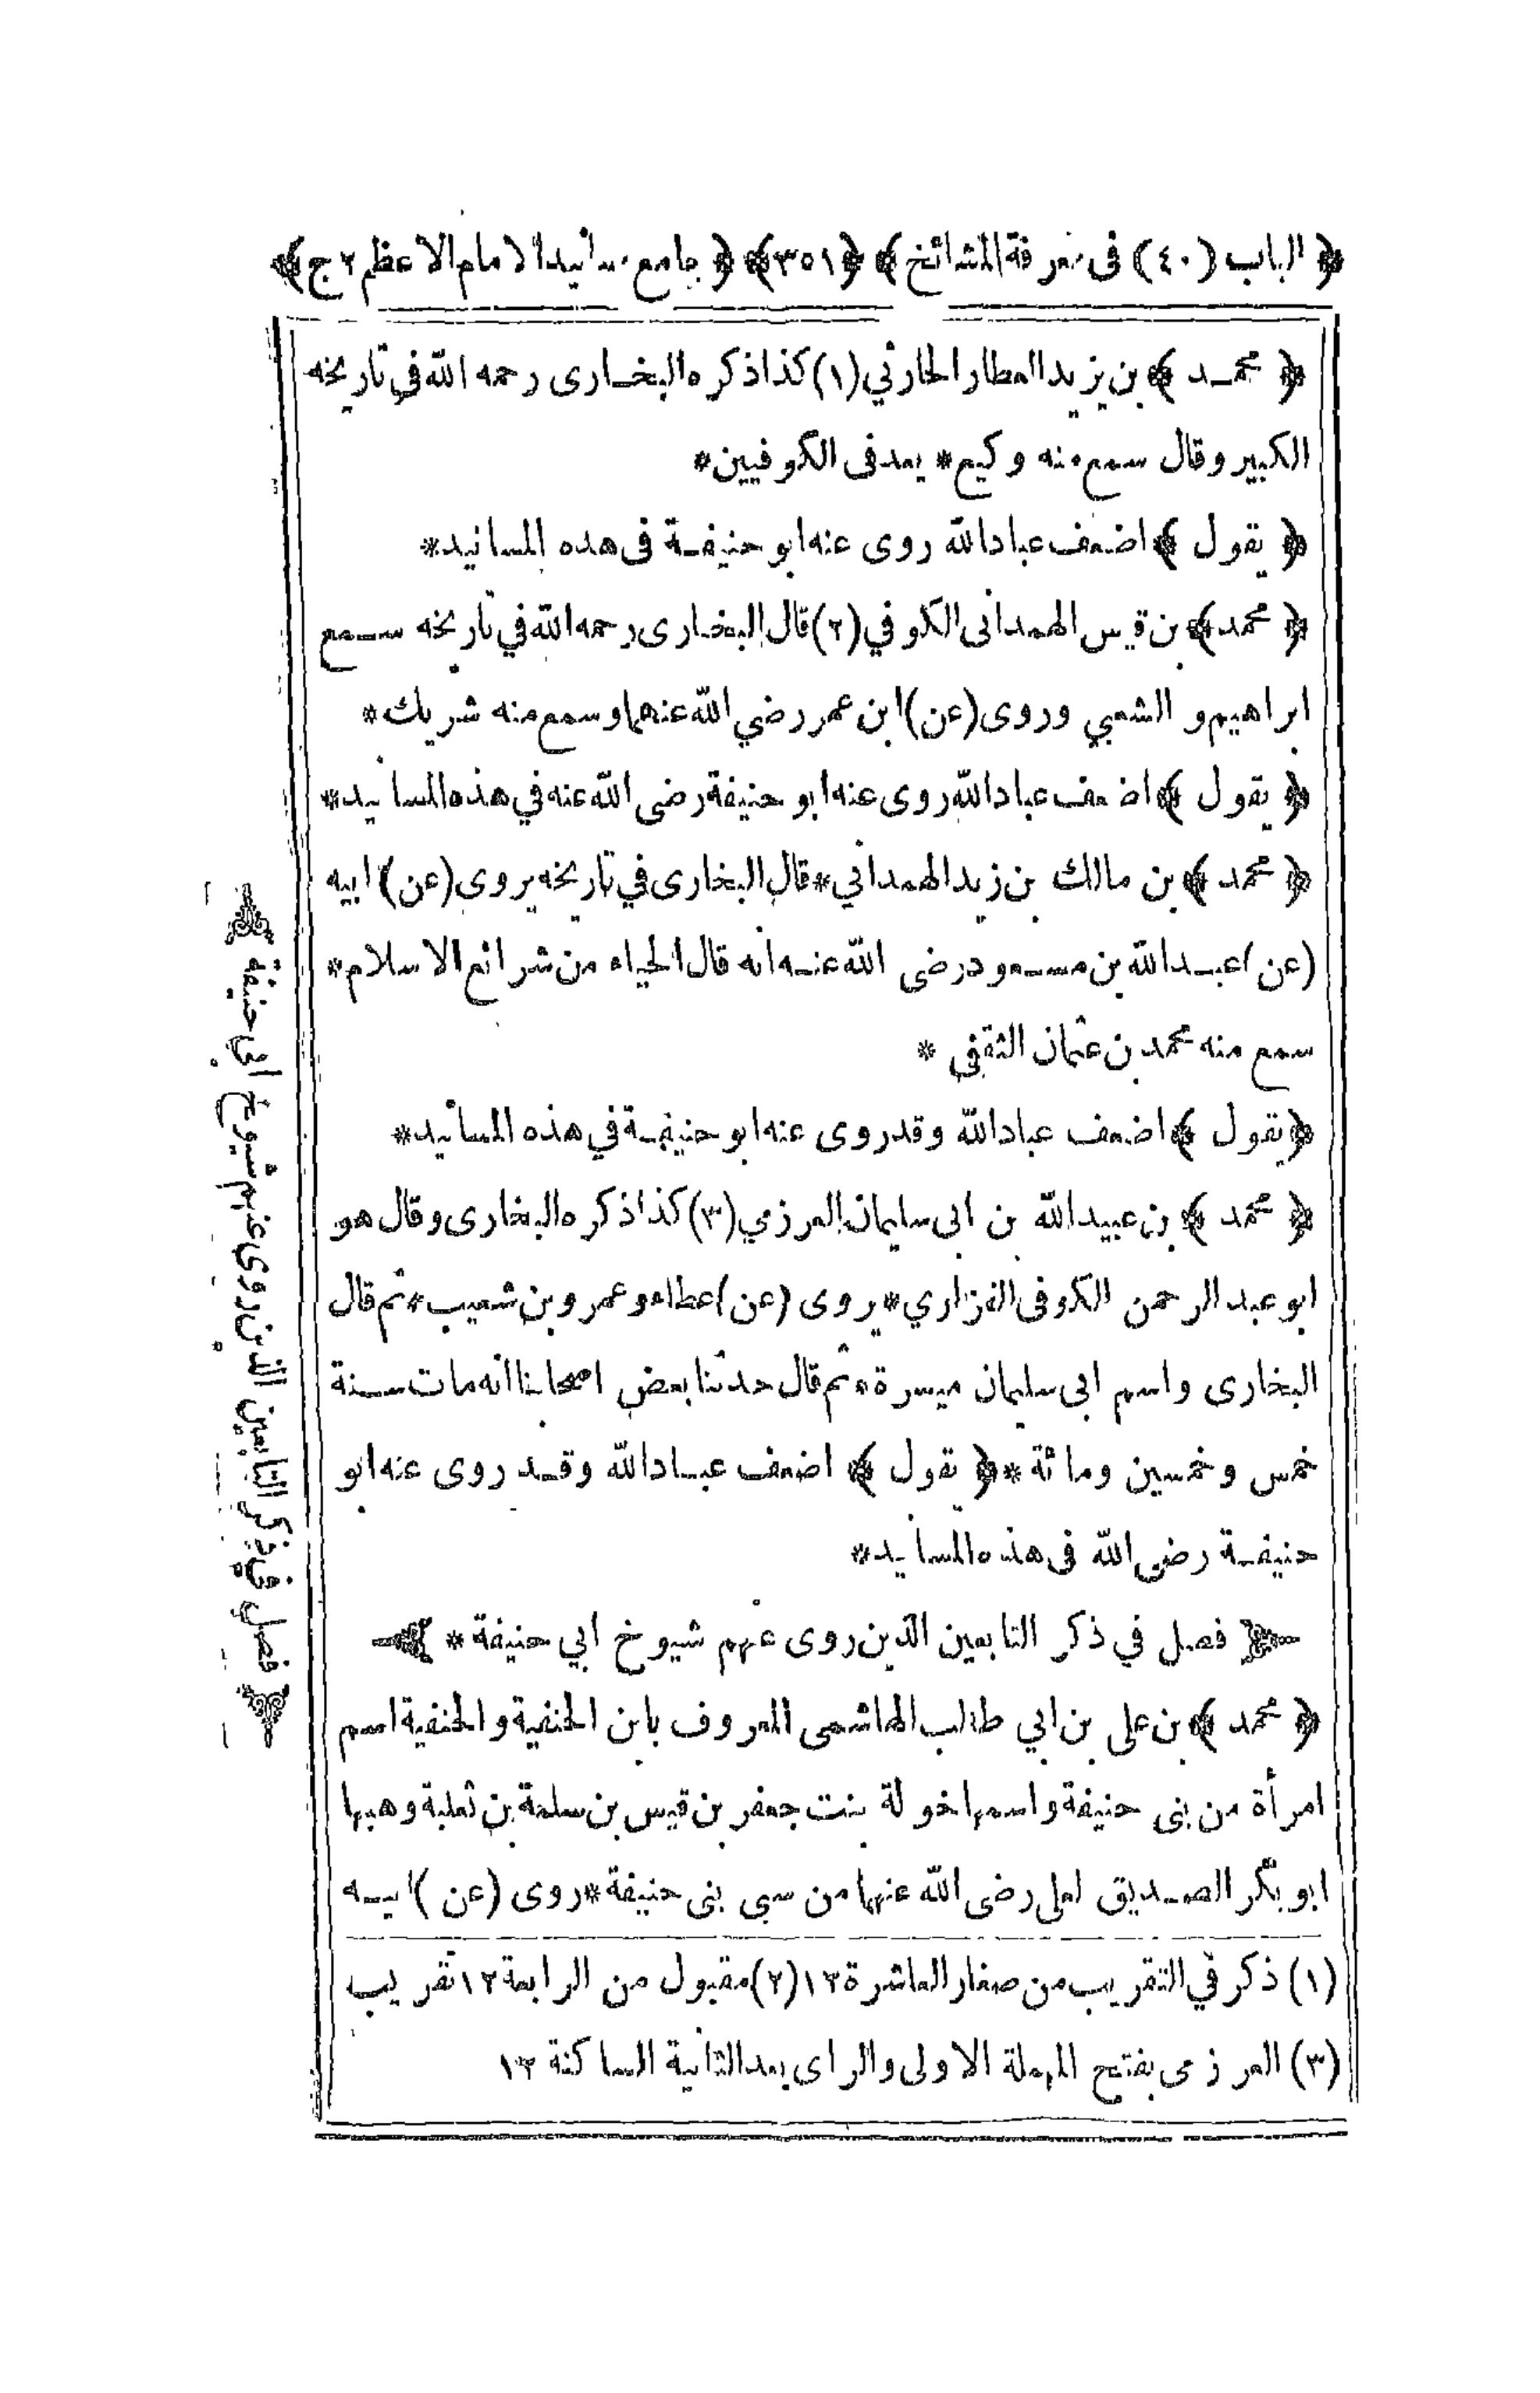 ﴿ الباب (٤٠) فى معرفة المشائخ ﴾ ﴿٣٥١﴾ ﴿ جامع مسانيد الامام الاعظم ٢ ج ﴾
﴿ محمد ﴾ بن يزيد العطار الحارثي (١) كذا ذكره البخارى رحمه الله في تاريخه
الكبير وقال سمع منه وكيع * يعد فى الكوفيين *
﴿ يقول ﴾ اضعف عباد الله روى عنه ابو حنيفة فى هذه المسانيد *
﴿ محمد ﴾ بن قيس الهمدانى الكوفي (٢) قال البخارى رحمه الله في تاريخه سمع
ابراهيم و الشعبي وروى (عن) ابن عمر رضي الله عنهما وسمع منه شريك *
﴿ يقول ﴾ اضعف عباد الله روى عنه ابو حنيفة رضى الله عنه في هذه المسانيد *
﴿ محمد ﴾ بن مالك بن زيد الهمداني * قال البخارى في تاريخه يروى (عن) ابيه
(عن) عبد الله بن مسعود رضى الله عنه انه قال الحياء من شرائع الاسلام *
سمع منه محمد بن عثمان الثقفى *
﴿ يقول ﴾ اضعف عباد الله وقد روى عنه ابو حنيفة في هذه المسانيد *
﴿ محمد ﴾ بن عبيد الله بن ابى سليمان العرزمي (٣) كذا ذكره البخارى وقال هو
ابو عبد الرحمن الكوفى الفزاري * يروى (عن) عطاء وعمرو بن شعيب * ثم قال
البخارى واسم ابى سليمان ميسرة * ثم قال حدثنا بعض اصحابنا انه مات سنة
خمس وخمسين ومائة * ﴿ يقول ﴾ اضعف عباد الله وقد روى عنه ابو
حنيفة رضى الله فى هذه المسانيد *
فصل في ذكر التابعين الذين روى عنهم شيوخ ابي حنيفة *
﴿ محمد ﴾ بن على بن ابي طالب الهاشمى المعروف بابن الحنفية والحنفية اسم
امرأة من بنى حنيفة واسمها خولة بنت جعفر بن قيس بن سلمة بن ثعلبة وهبها
ابو بكر الصديق لعلى رضى الله عنهما من سبى بنى حنيفة * روى (عن) ابيه
(١) ذكر في التقريب من صغار العاشرة ١٢ (٢) مقبول من الرابعة ١٢ تقريب
(٣) العرزمى بفتح المهملة الاولى والراى بعد الثانية الساكنة ١٢
فصل في ذكر التابعين الذين روى عنهم شيوخ ابى حنيفة